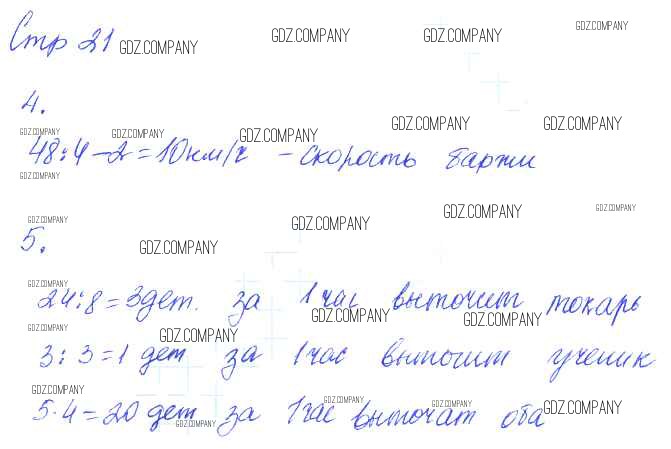 Стр 21
GDZ.COMPANY GDZ.COMPANY GDZ.COMPANY GDZ.COMPANY
4.
GDZ.COMPANY GDZ.COMPANY GDZ.COMPANY GDZ.COMPANY GDZ.COMPANY
48:4-2=10км/ч - скорость баржи
GDZ.COMPANY
GDZ.COMPANY GDZ.COMPANY GDZ.COMPANY GDZ.COMPANY
5.
GDZ.COMPANY
GDZ.COMPANY
24:8=3дет. за 1 час выточит токарь
GDZ.COMPANY GDZ.COMPANY GDZ.COMPANY
GDZ.COMPANY
3:3=1 дет за 1час выточит ученик
GDZ.COMPANY
5·4=20 дет за 1час выточат оба
GDZ.COMPANY GDZ.COMPANY GDZ.COMPANY GDZ.COMPANY